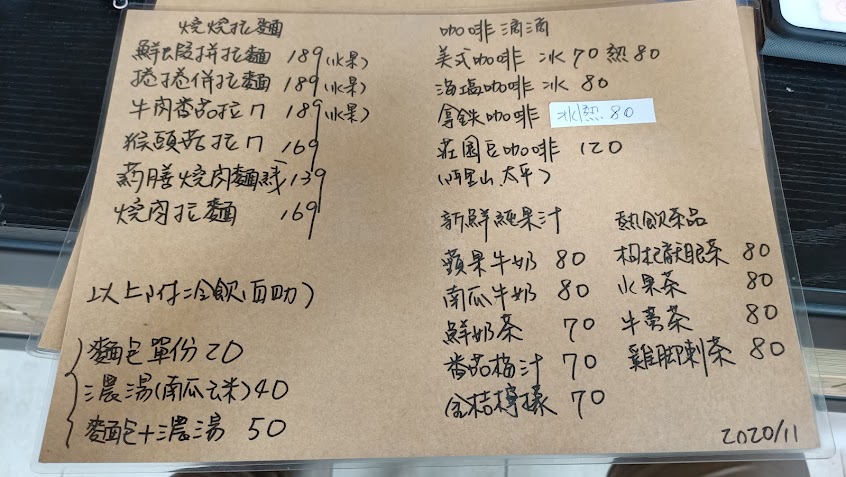 燒燒拉麵
鮮蝦拼拉麵 189(水果)
捲捲併拉麵 189(水果)
牛肉番茄拉ㄇ 189(水果)
猴頭菇拉ㄇ 169
葯膳燒肉麵線 139
燒肉拉麵 169
以上附冷飲(自助)
麵包單份20
濃湯(南瓜玉米)40
麵包+濃湯 50
咖啡滴滴
美式咖啡 冰70 熱80
海塩咖啡 冰 80
拿鉄咖啡 冰熱80
莊園豆咖啡 120
(阿里山.太平)
新鮮純果汁
蘋果牛奶 80
南瓜牛奶 80
鮮奶茶 70
番茄梅汁 70
金桔檸檬 70
熱飲茶品
枸杞龍眼茶 80
水果茶 80
牛蒡茶 80
雞腳刺茶 80
2020/11